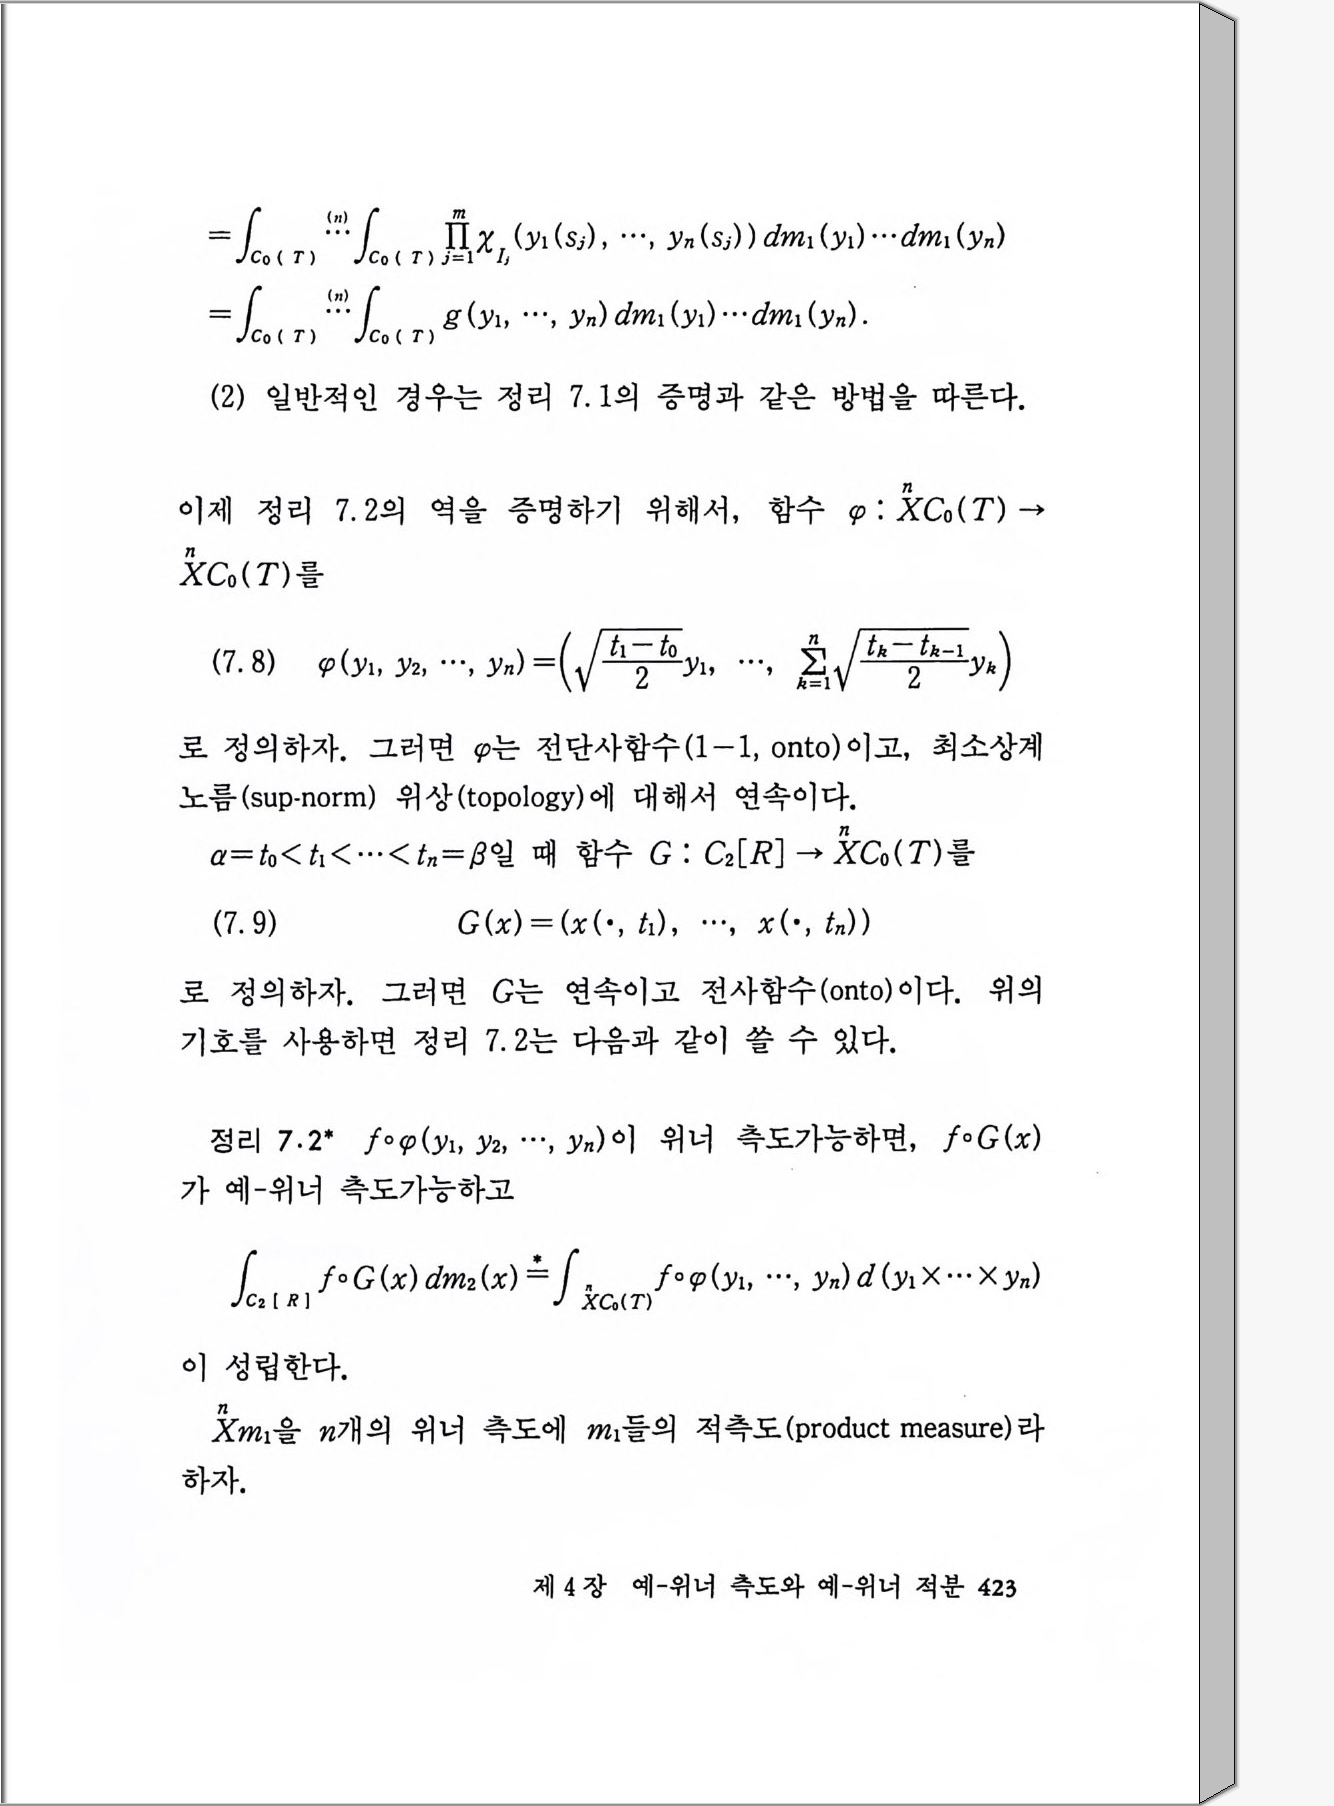 =∫_{C₀(T)} ⋯^{(n)} ∫_{C₀(T)} ∏_{j=1}^{m} χ_{I_j}(y₁(s_j), ⋯, y_n(s_j)) dm₁(y₁)⋯dm₁(y_n)
=∫_{C₀(T)} ⋯^{(n)} ∫_{C₀(T)} g(y₁, ⋯, y_n) dm₁(y₁)⋯dm₁(y_n).
(2) 일반적인 경우는 정리 7.1의 증명과 같은 방법을 따른다.
이제 정리 7.2의 역을 증명하기 위해서, 함수 φ : X^{n}C₀(T) →
X^{n}C₀(T)를
(7.8) φ(y₁, y₂, ⋯, y_n)=(√((t₁−t₀)/2) y₁, ⋯, ∑_{k=1}^{n} √((t_k−t_{k−1})/2) y_k)
로 정의하자. 그러면 φ는 전단사함수(1−1, onto)이고, 최소상계
노름(sup-norm) 위상(topology)에 대해서 연속이다.
α=t₀<t₁<⋯<t_n=β일 때 함수 G : C₂[R] → X^{n}C₀(T)를
(7.9) G(x)=(x(·, t₁), ⋯, x(·, t_n))
로 정의하자. 그러면 G는 연속이고 전사함수(onto)이다. 위의
기호를 사용하면 정리 7.2는 다음과 같이 쓸 수 있다.
정리 7.2* f∘φ(y₁, y₂, ⋯, y_n)이 위너 측도가능하면, f∘G(x)
가 예-위너 측도가능하고
∫_{C₂[R]} f∘G(x) dm₂(x) =^{*} ∫_{X^{n}C₀(T)} f∘φ(y₁, ⋯, y_n) d(y₁×⋯×y_n)
이 성립한다.
X^{n}m₁을 n개의 위너 측도에 m₁들의 적측도(product measure)라
하자.
제 4 장 예-위너 측도와 예-위너 적분 423